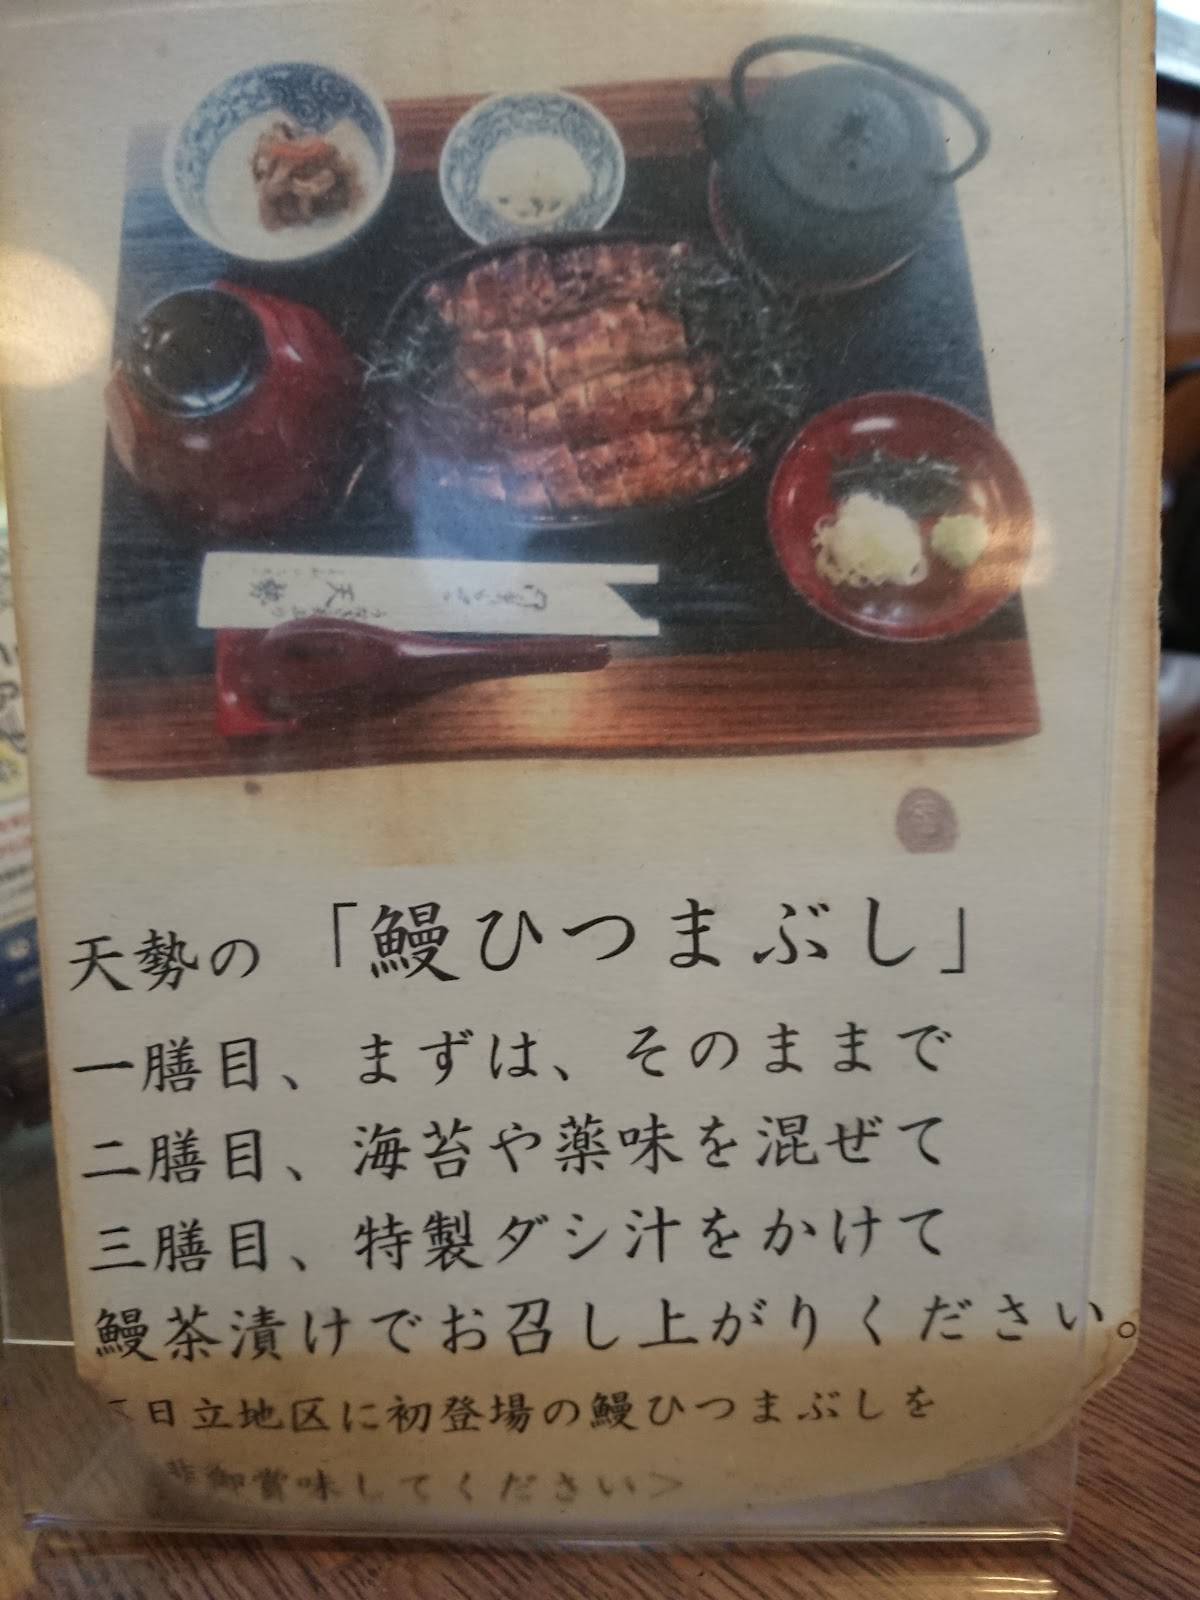 天勢
天勢の「鰻ひつまぶし」
一膳目、まずは、そのままで
二膳目、海苔や薬味を混ぜて
三膳目、特製ダシ汁をかけて
鰻茶漬けでお召し上がりください。
日立地区に初登場の鰻ひつまぶしを
御賞味してください＞